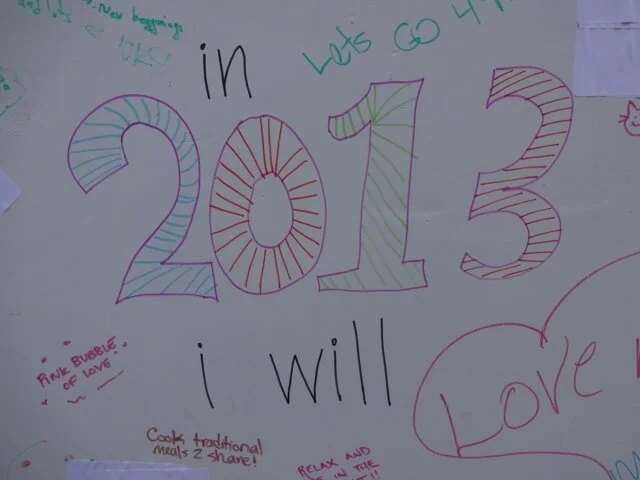 New beginnings
in
Lets GO 4
2013
i will
PINK BUBBLE
OF LOVE!
LOVE
Cook traditional
meals 2 share!
RELAX AND
IN THE